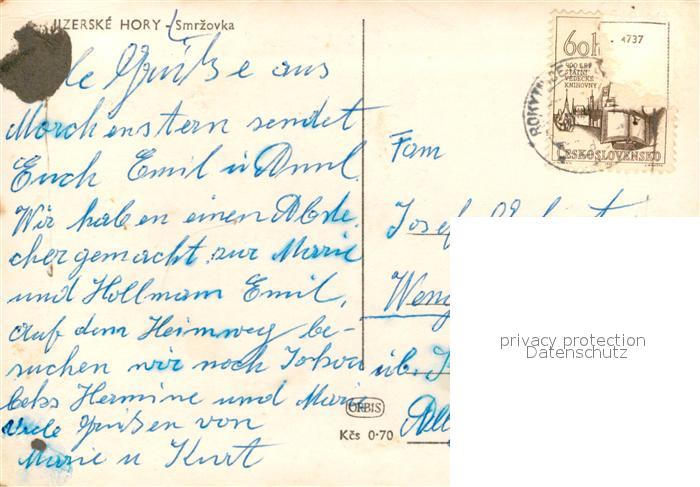 JIZERSKÉ HORY - Smržovka
Grüße aus
Morchenstern sendet
Euch Emil u
Wir haben einen Abste-
cher gemacht zur Marie
und Hollmann Emil,
auf dem Heimweg be-
suchen wir noch
Hermine und Marie
viele Grüßen von
Marie u Kurt
ORBIS
Kčs 0·70
60h
4737
400 LET
STÁTNÍ
VĚDECKÉ
KNIHOVNY
ČESKOSLOVENSKO
ROKYTN
Fam
Josef
Weng
üb. J
All
privacy protection
Datenschutz